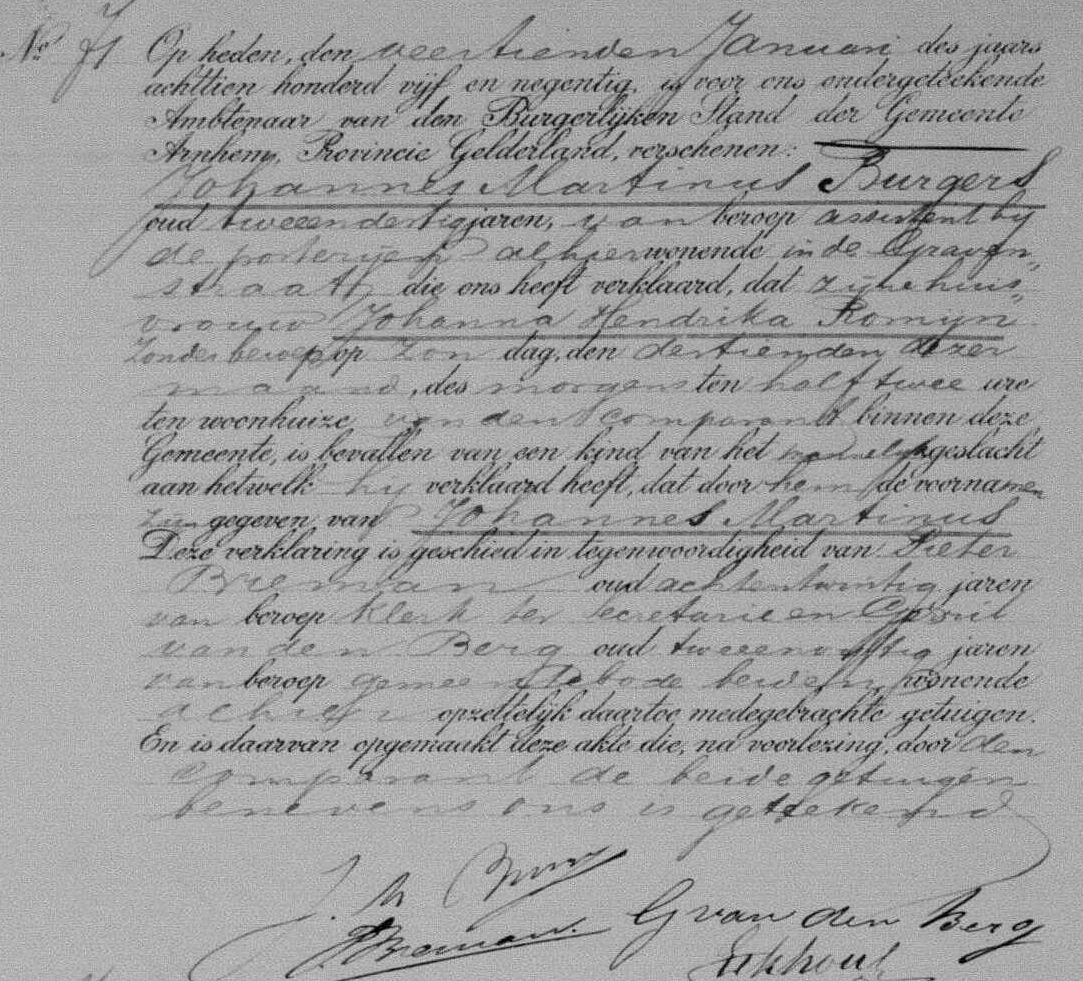 No 71 Op heden, den veertienden Januari des jaars
achttien honderd vijf en negentig, is voor ons ondergeteekende
Ambtenaar van den Burgerlijken Stand der Gemeente
Arnhem, Provincie Gelderland, verschenen:
Johannes Martinus Burgers
oud tweeendertig jaren, van beroep assistent bij
de posterijen alhier wonende in de Graven„
straat, die ons heeft verklaard, dat zijne huis„
vrouw Johanna Hendrika Romijn
zonder beroep op Zon dag, den dertienden dezer
maand, des morgens ten half twee ure
ten woonhuize van den comparant binnen deze
Gemeente, is bevallen van een kind van het mannelijk geslacht
aan hetwelk hij verklaard heeft, dat door hem de voornamen
zijn gegeven van Johannes Martinus
Deze verklaring is geschied in tegenwoordigheid van: Pieter
Breman oud achtentwintig jaren
van beroep klerk ter secretarie en
van den Berg oud tweeenvijftig jaren
van beroep gemeentebode beiden wonende
alhier opzettelijk daartoe medegebrachte getuigen.
En is daarvan opgemaakt deze akte die, na voorlezing, door den
comparant de beide getuigen
benevens ons is geteekend
J. M. Burgers
P. Breman. G van den Berg